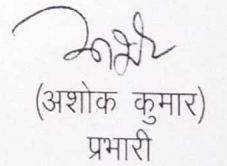 (अशोक कुमार)
प्रभारी